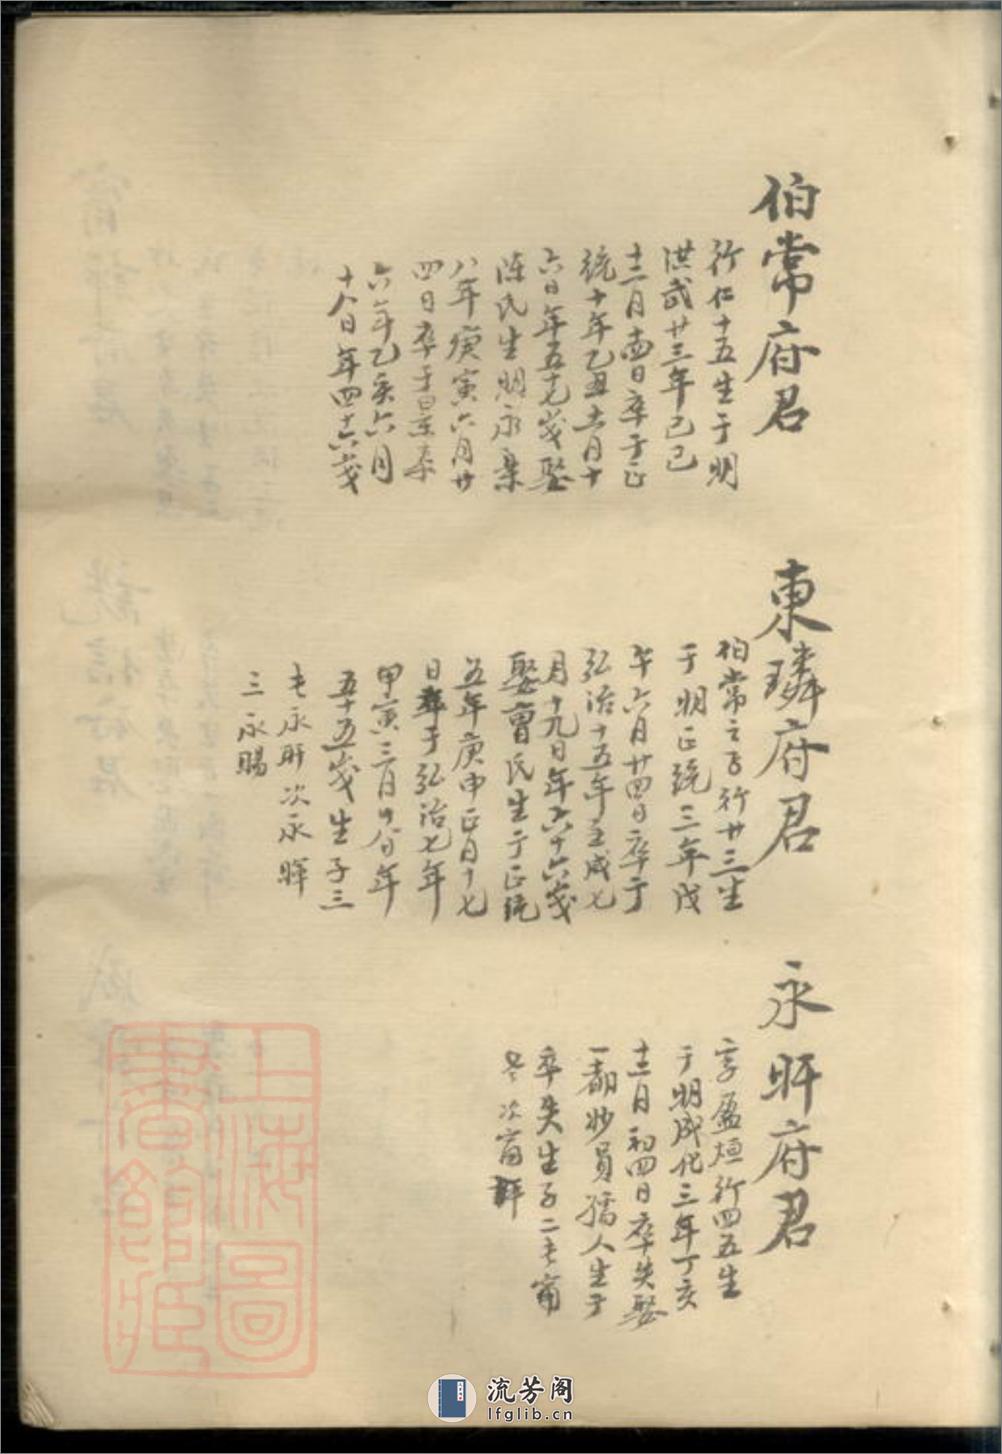 伯常府君
行仁十五生于明
洪武廿三年己巳
十二月十四日卒于正
統十年乙丑十一月十
六日年五十七歲娶
陳氏生明永樂
八年庚寅六月廿
四日卒于景泰
六年乙亥六月
十八日年四十六歲
東璘府君
伯常之子行廿三生
于明正統三年戊
午六月廿四日卒于
弘治十五年壬戌七
月十九日年六十六歲
娶曾氏生于正統
五年庚申正月十七
日卒于弘治七年
甲寅三月廿八日年
五十五歲生子三
長永旰次永暉
三永賜
永旰府君
字盈烜行四五生
于明成化三年丁亥
十二月初四日卒失娶
一都妙員孺人生于
卒失生子二長甯
次甯
上海圖
書館藏
流芳阁
lfglib.cn